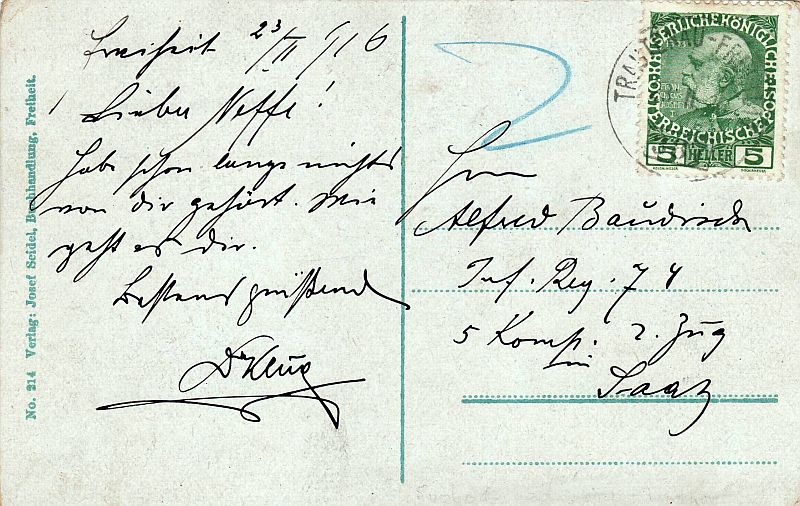 Freiheit 23/II 1916
Lieber Neffe!
Habe schon lange nichts
von dir gehört. Wie
geht es dir.
Bestens grüßend
Dr Klug
No. 214 Verlag: Josef Seidel, Buchhandlung, Freiheit.
KAISERLICHE KÖNIGLICHE
ÖSTERREICHISCHE POST
5 HELLER 5
TRAUTENAU-FR
Herrn
Alfred Baudisch
Inf. Reg. 74
5 Komp. 2. Zug
in
Saaz